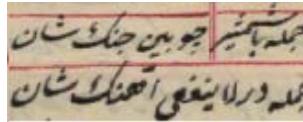 جمله با شمشیر چوبین جنک شان
جمله در لاینفعی آهنک شان